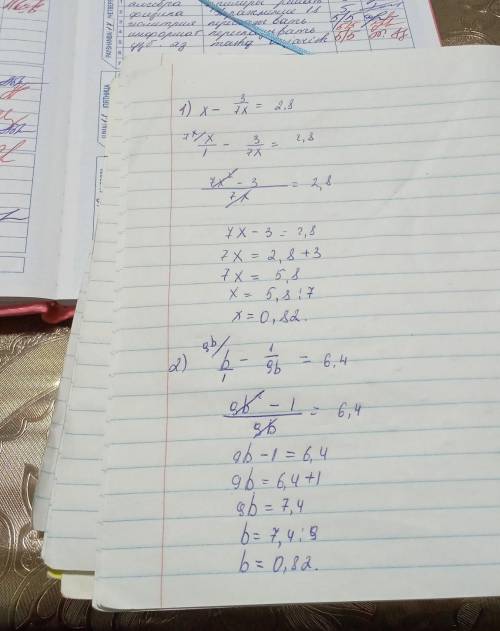 алгебра
физика
1) x - 3/7x = 2,8
7x/ x/1 - 3/7x = 2,8
7x² - 3 / 7x = 2,8
7x - 3 = 2,8
7x = 2,8 + 3
7x = 5,8
x = 5,8 : 7
x = 0,82.
2) 9b/ b/1 - 1/9b = 6,4
9b² - 1 / 9b = 6,4
9b - 1 = 6,4
9b = 6,4 + 1
9b = 7,4
b = 7,4 : 9
b = 0,82.